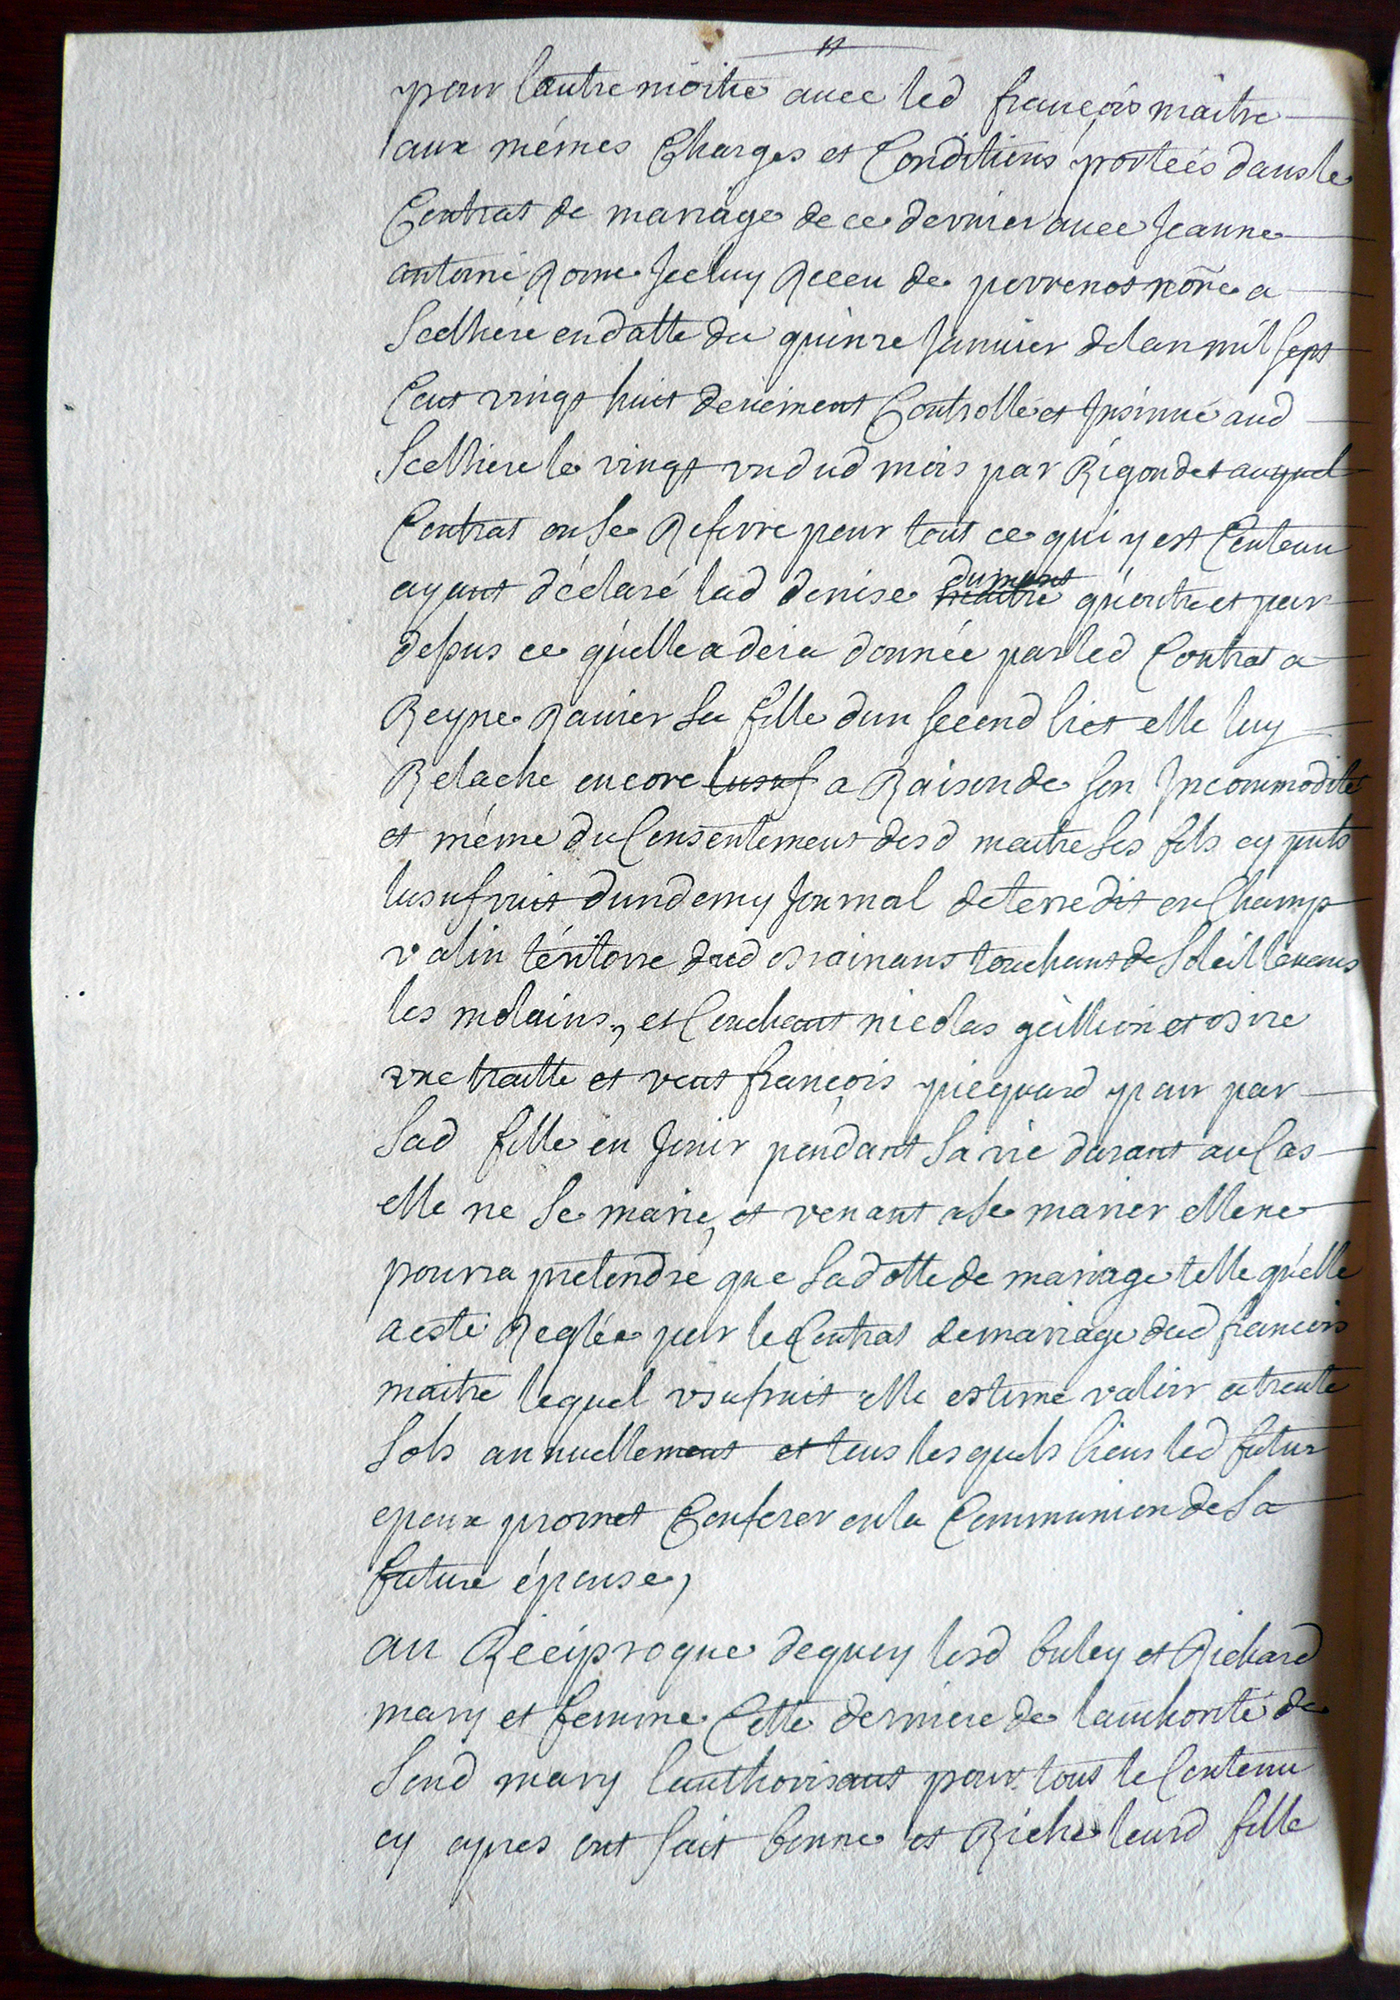 pour lautre moitié avec led françois maitre
aux mémes Charges et Conditions portées dans le
Contrat de mariage de ce dernier avec Jeanne
antoine Rome Jceluy Receu de perrenot nore a
Sellière en datte du quinze Janvier de lan mil sept
Cent vingt huit deuement Controllé et Jnsinué aud
Scelliere le vingt un dud mois par Rigondet auquel
Contrat on se Referre pour tout ce qui y est Contenu
ayant déclaré lad denise dumont qu'outre et par
dessus ce quelle a deia donnée par led Contrat a
Reyne Ravier sa fille dun second lict elle luy
Relache encore a Raison de son Jncommodité
et méme du Consentement desd maitre ses fils cy puts
lusufruit dun demy Journal de terre dit en Champ
valin téritoire dud touchant de Soleil levant
les molains, et Couchant nicolas guillion et
une traitte et vent françois piequard pour par
sad fille en Jouir pendant sa vie durant au Cas
elle ne se marie, et venant a se marier elle ne
pourra prétendre que sa dotte de mariage telle quelle
a esté Reglée par le Contrat de mariage dud francois
maitre lequel usufruit elle estime valoir a trente
sols annuellement et tous lesquels biens led futur
epoux promet Conferer en la Communion de sa
future épouse,
au Réciproque de quoy lesd buley et Richard
mary et femme Cette derniere de lauthorité de
sond mary lauthorisant pour tout le Contenu
cy apres ont fait bonne et Riche leurd fille